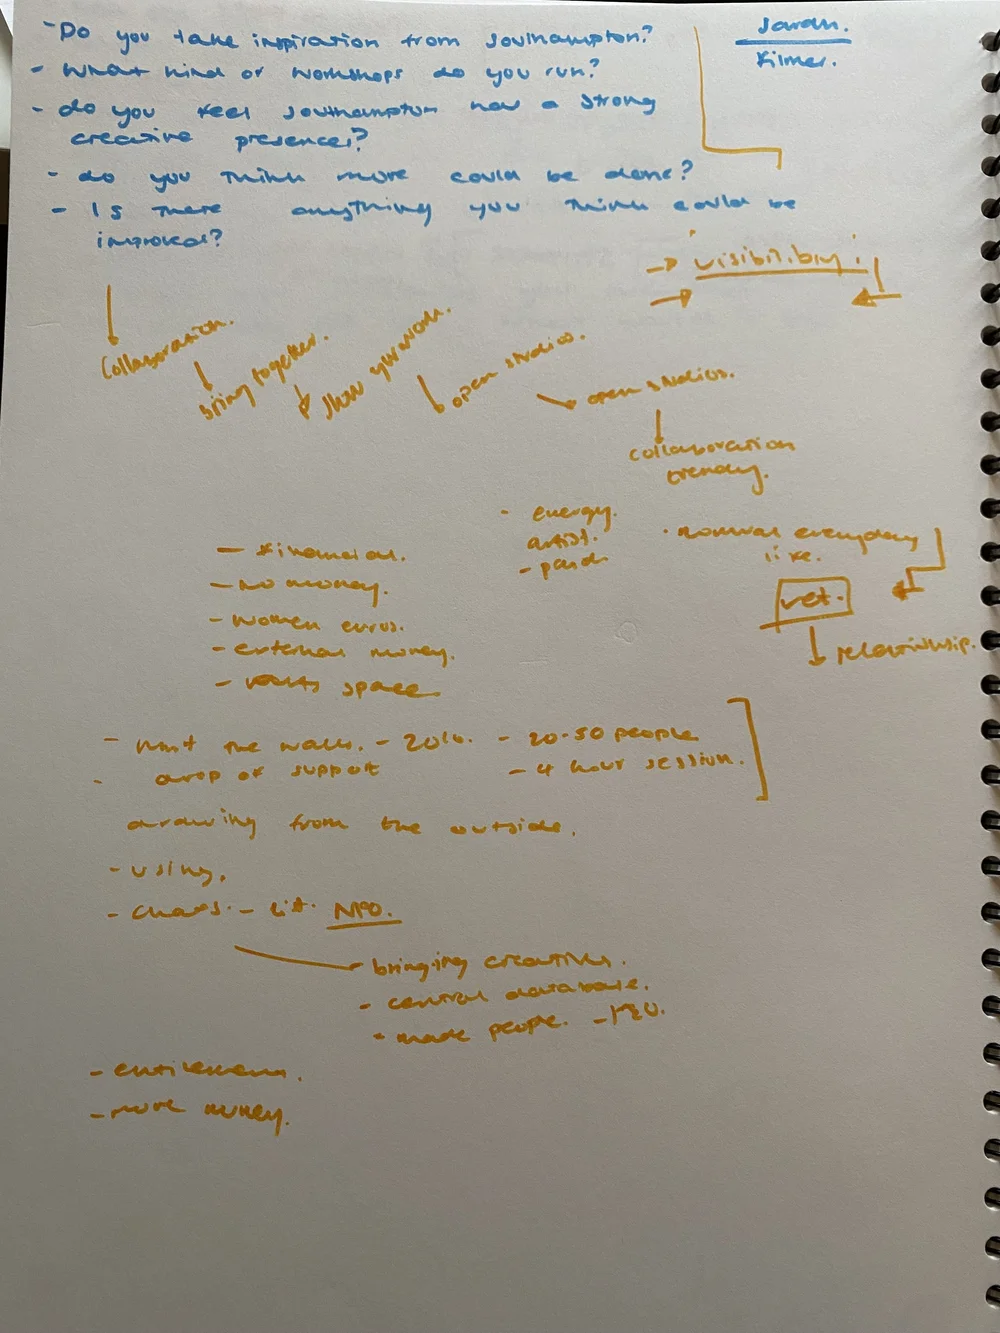 - Do you take inspiration from Southampton?
- What kind of workshops do you run?
- do you feel Southampton has a strong
creative presence?
- do you think more could be done?
- Is there anything you think could be
improved?
Sarah.
Filmer.
→ visibility.
collaboration.
bring together.
show your work.
open studios.
open studios.
collaboration
trendy.
- energy.
artist.
- paid
· normal everyday
life.
vet.
relationship.
- financial.
- no money.
- women
- external money.
- space
- the walls. - 20 - 20-50 people
- drop of support - 4 hour session.
drawing from the outside.
- using.
- - list. NPO.
bringing creatives.
- central database.
- made people.
-
- more money.